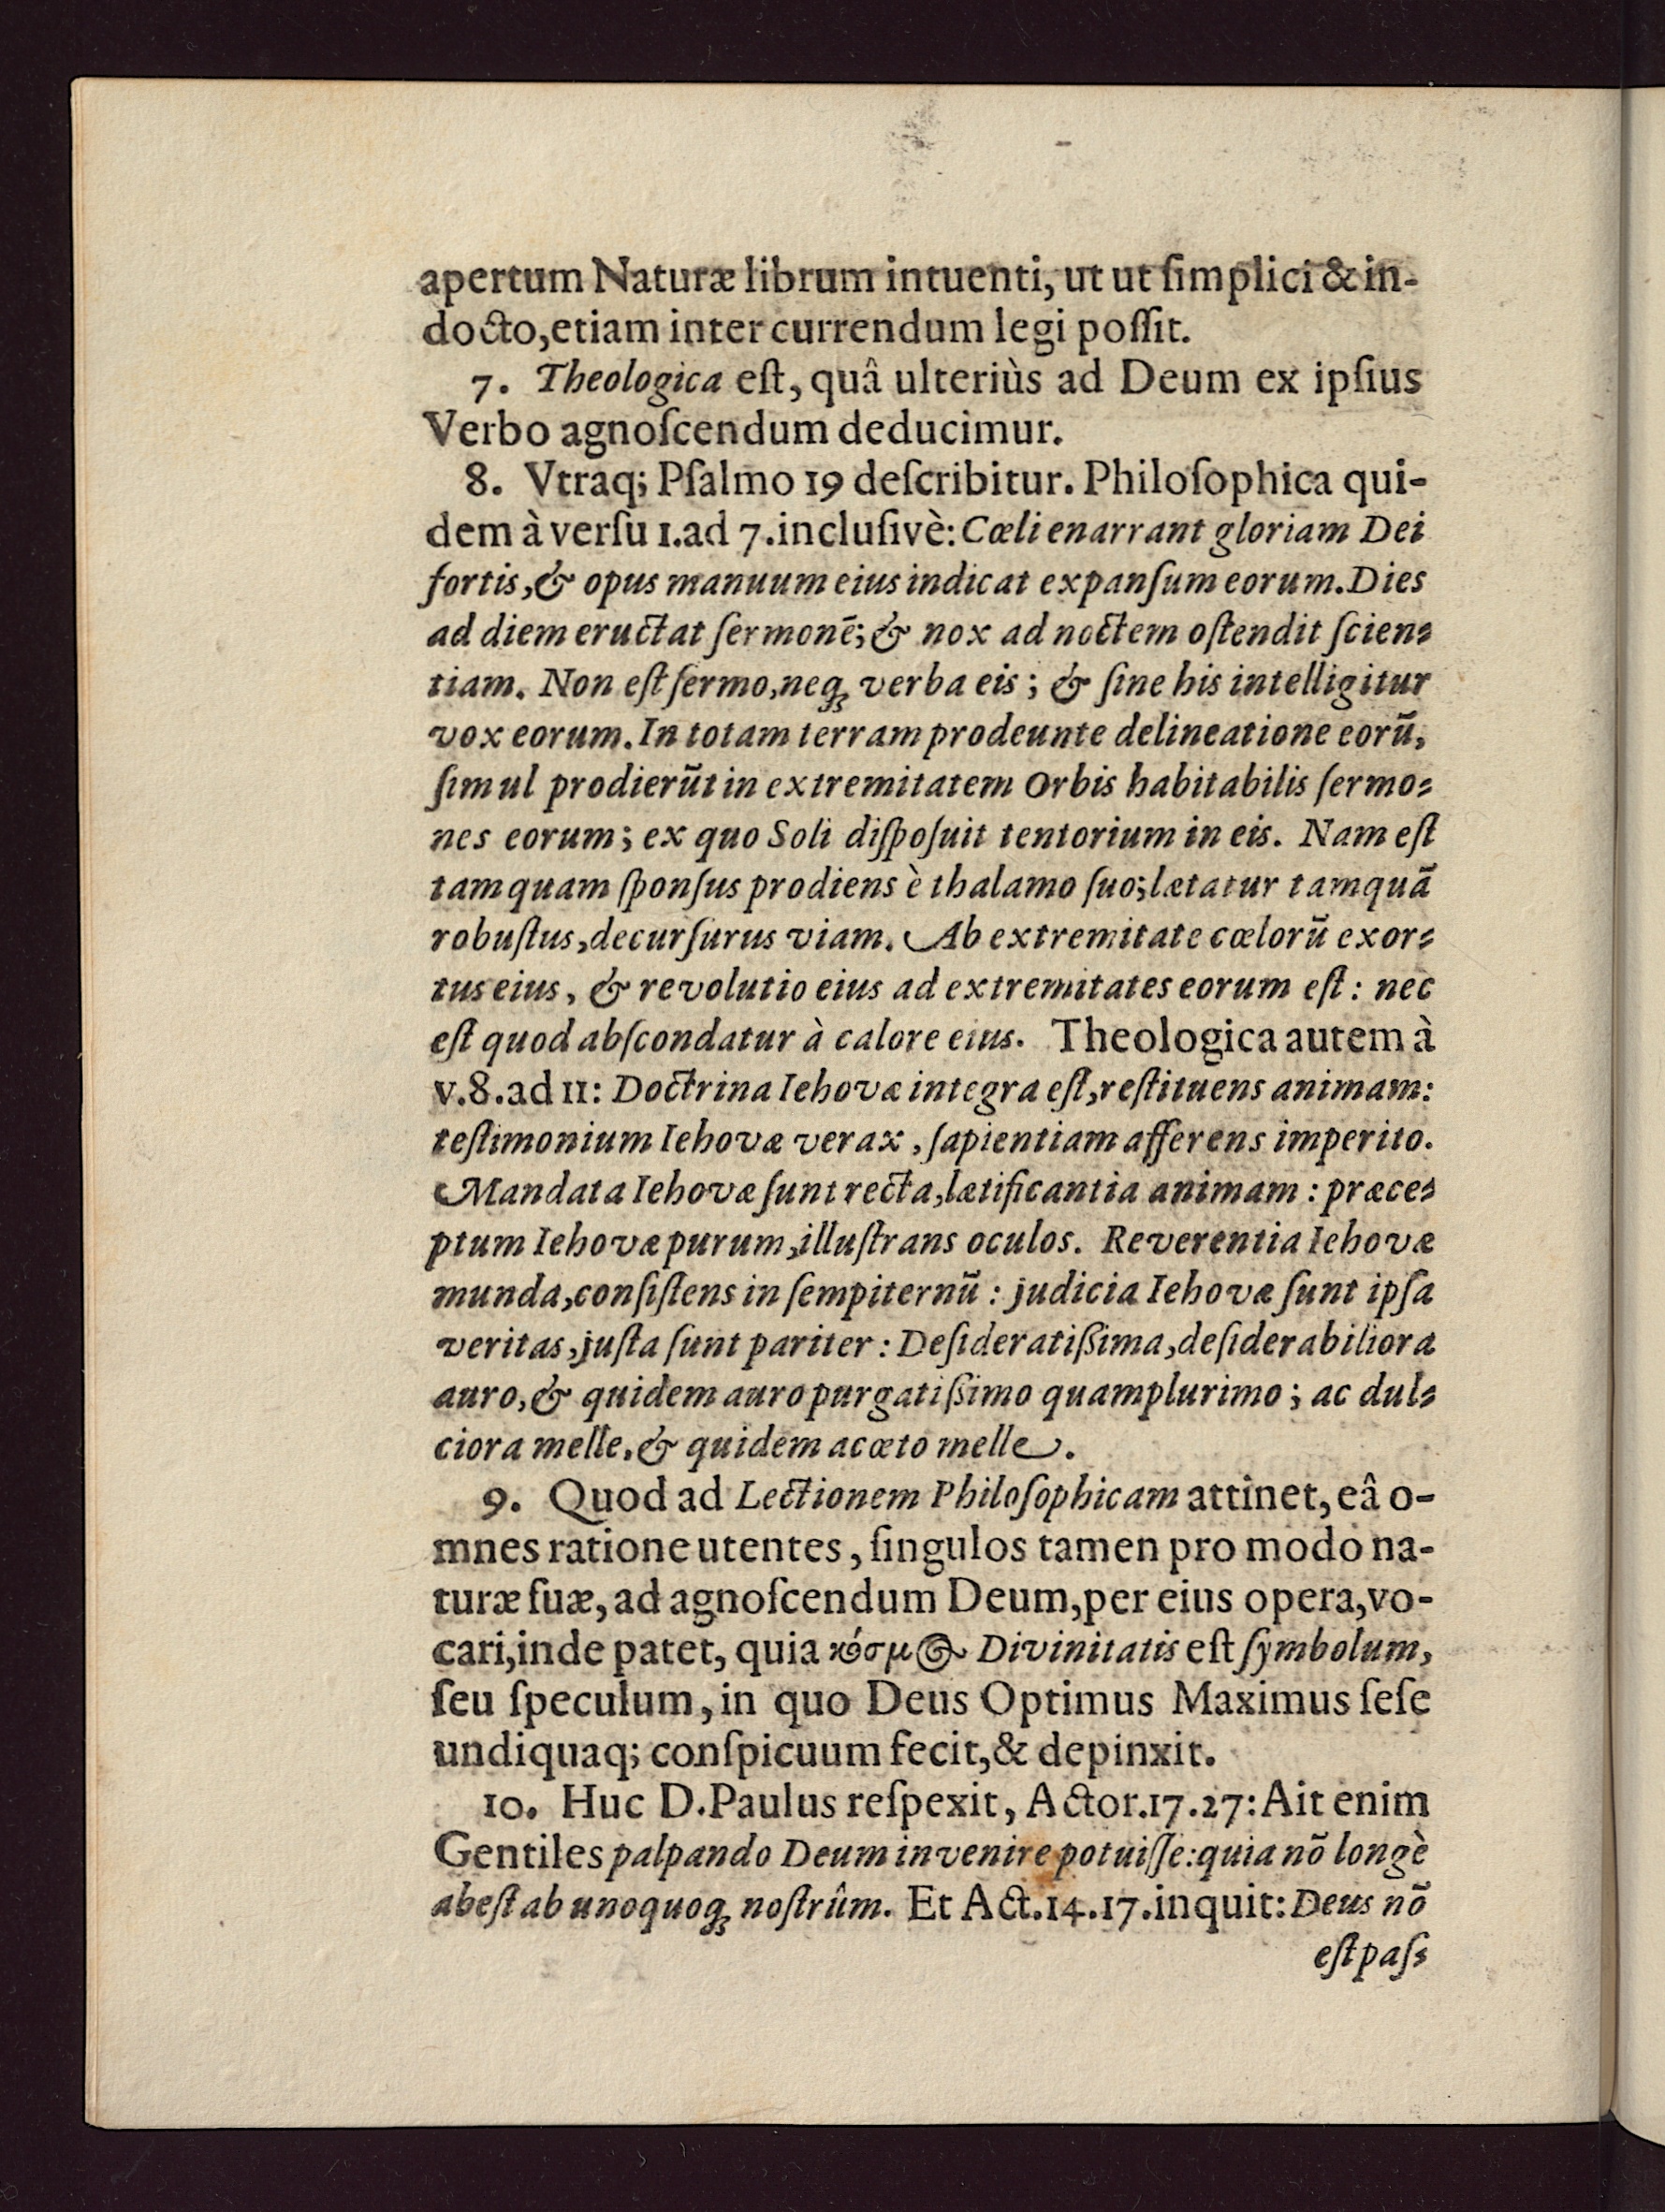 apertum Naturæ librum intuenti, ut ut ſimplici & in-
docto, etiam inter currendum legi poſſit.
7. Theologica eſt, quâ ulteriùs ad Deum ex ipſius
Verbo agnoſcendum deducimur.
8. Vtraq; Pſalmo 19 deſcribitur. Philoſophica qui-
dem à verſu 1. ad 7. incluſivè: Cœli enarrant gloriam Dei
fortis, & opus manuum eius indicat expanſum eorum. Dies
ad diem eructat ſermonē; & nox ad noctem oſtendit ſcien-
tiam. Non eſt ſermo, neq̃ verba eis; & ſine his intelligitur
vox eorum. In totam terram prodeunte delineatione eorū,
ſimul prodierūt in extremitatem Orbis habitabilis ſermo-
nes eorum; ex quo Soli diſpoſuit tentorium in eis. Nam eſt
tamquam ſponſus prodiens è thalamo ſuo; lætatur tamquā
robuſtus, decurſurus viam. Ab extremitate cœlorū exor-
tus eius, & revolutio eius ad extremitates eorum eſt: nec
eſt quod abſcondatur à calore eius. Theologica autem à
v. 8. ad 11: Doctrina Iehovæ integra eſt, reſtituens animam:
teſtimonium Iehovæ verax, ſapientiam afferens imperito.
Mandata Iehovæ ſunt recta, lætificantia animam: præce-
ptum Iehovæ purum, illuſtrans oculos. Reverentia Iehovæ
munda, conſiſtens in ſempiternū: judicia Iehovæ ſunt ipſa
veritas, juſta ſunt pariter: Deſideratißima, deſiderabiliora
auro, & quidem auro purgatißimo quamplurimo; ac dul-
ciora melle, & quidem acœto melle.
9. Quod ad Lectionem Philoſophicam attinet, eâ o-
mnes ratione utentes, ſingulos tamen pro modo na-
turæ ſuæ, ad agnoſcendum Deum, per eius opera, vo-
cari, inde patet, quia κόσμος Divinitatis eſt ſymbolum,
ſeu ſpeculum, in quo Deus Optimus Maximus ſeſe
undiquaq; conſpicuum fecit, & depinxit.
10. Huc D. Paulus reſpexit, Actor. 17. 27: Ait enim
Gentiles palpando Deum invenire potuiſſe: quia nō longè
abeſt ab unoquoq̃ noſtrûm. Et Act. 14. 17. inquit: Deus nō
eſt paſ-